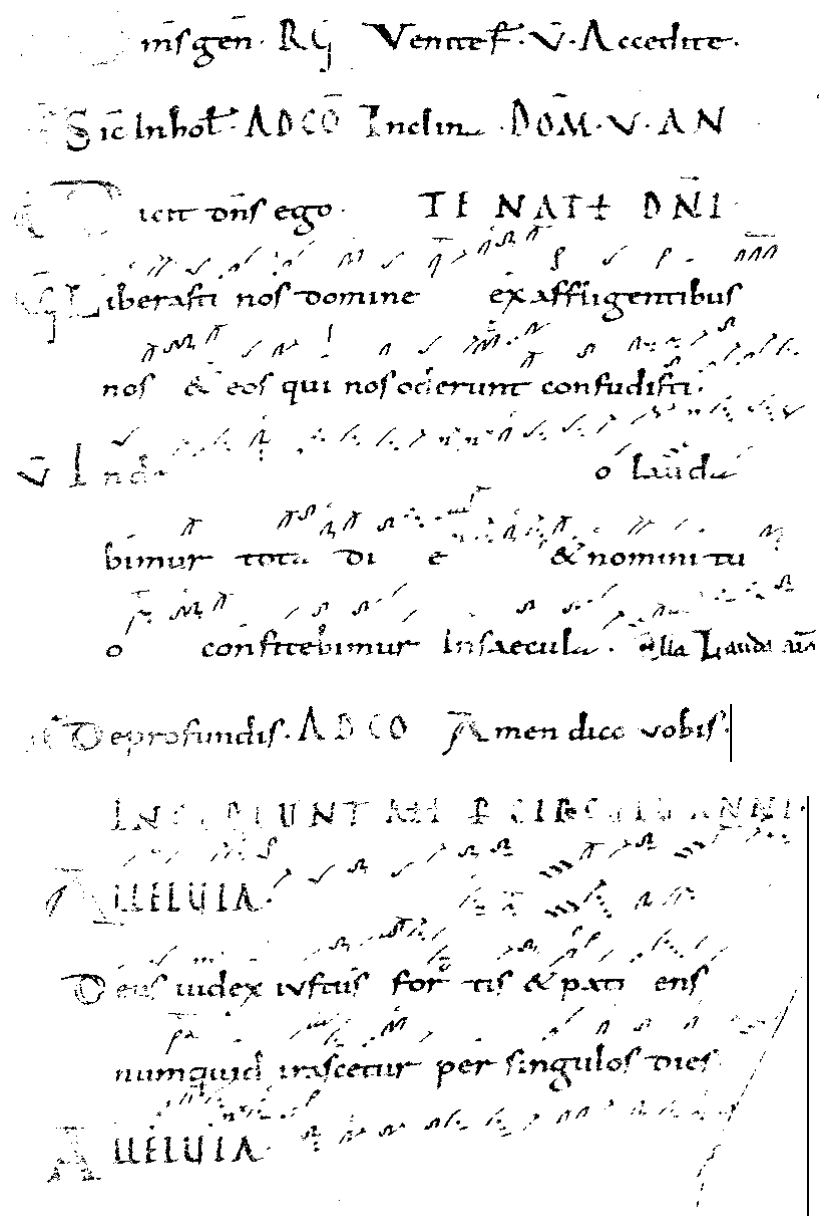 om̄s gen̄. R̄G Venite f. V̄. Accedite.
Sic̄ In hol. AD CŌ Inclin DOM̄. V. AN
Dicit dn̄s ego. TE NAT DN̄I
Ḡ Liberasti nos domine ex affligentibus
nos & eos qui nos oderunt confudisti.
V̄ In d o lauda
bimur tota di e & nomini tu
o confitebimur in saecula. All̄a Lauda
De profundis. AD CO Amen dico vobis.
INCIPIUNT CIRCULI ANNI.
ALLELUIA.
Deus iudex iustus for tis & pati ens
numquid irascetur per singulos dies
ALLELUIA.